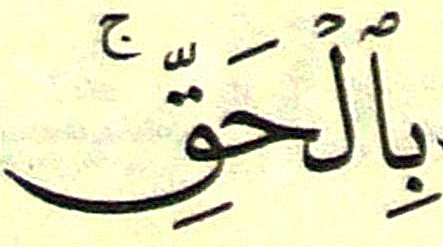 بِٱلْحَقِّ ۚ